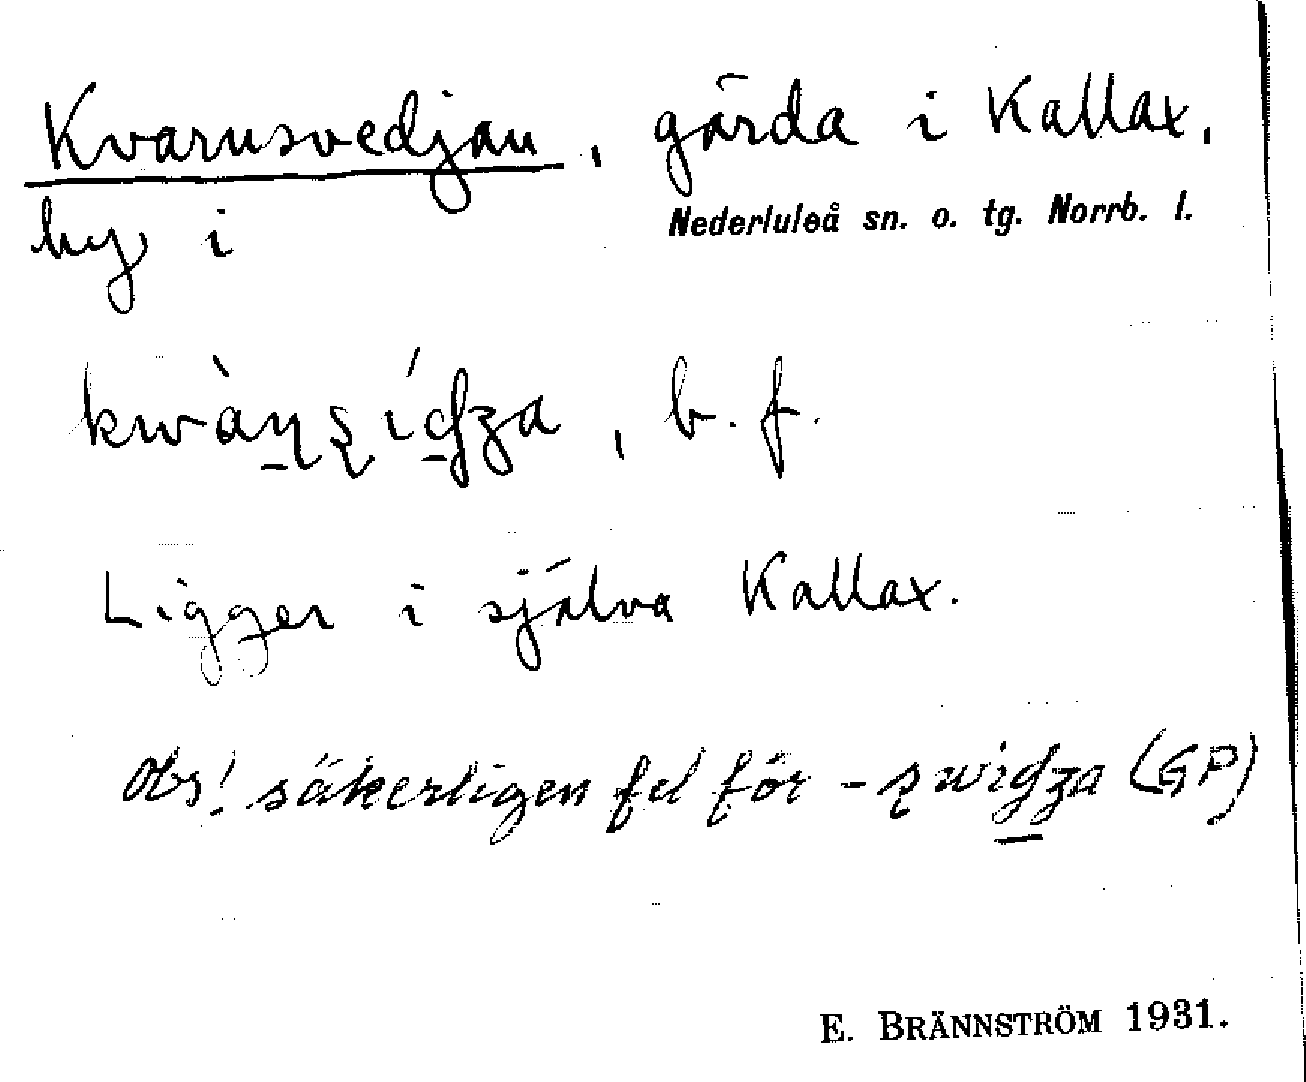 Kvarnsvedjan, gärda i Kallax,
by i Nederluleå sn. o. tg. Norrb. l.
kwàṉʂíḏʒa, b. f.
Ligger i själva Kallax.
Obs! säkerligen fel för -ʂwiḏʒa (GP)
E. BRÄNNSTRÖM 1931.